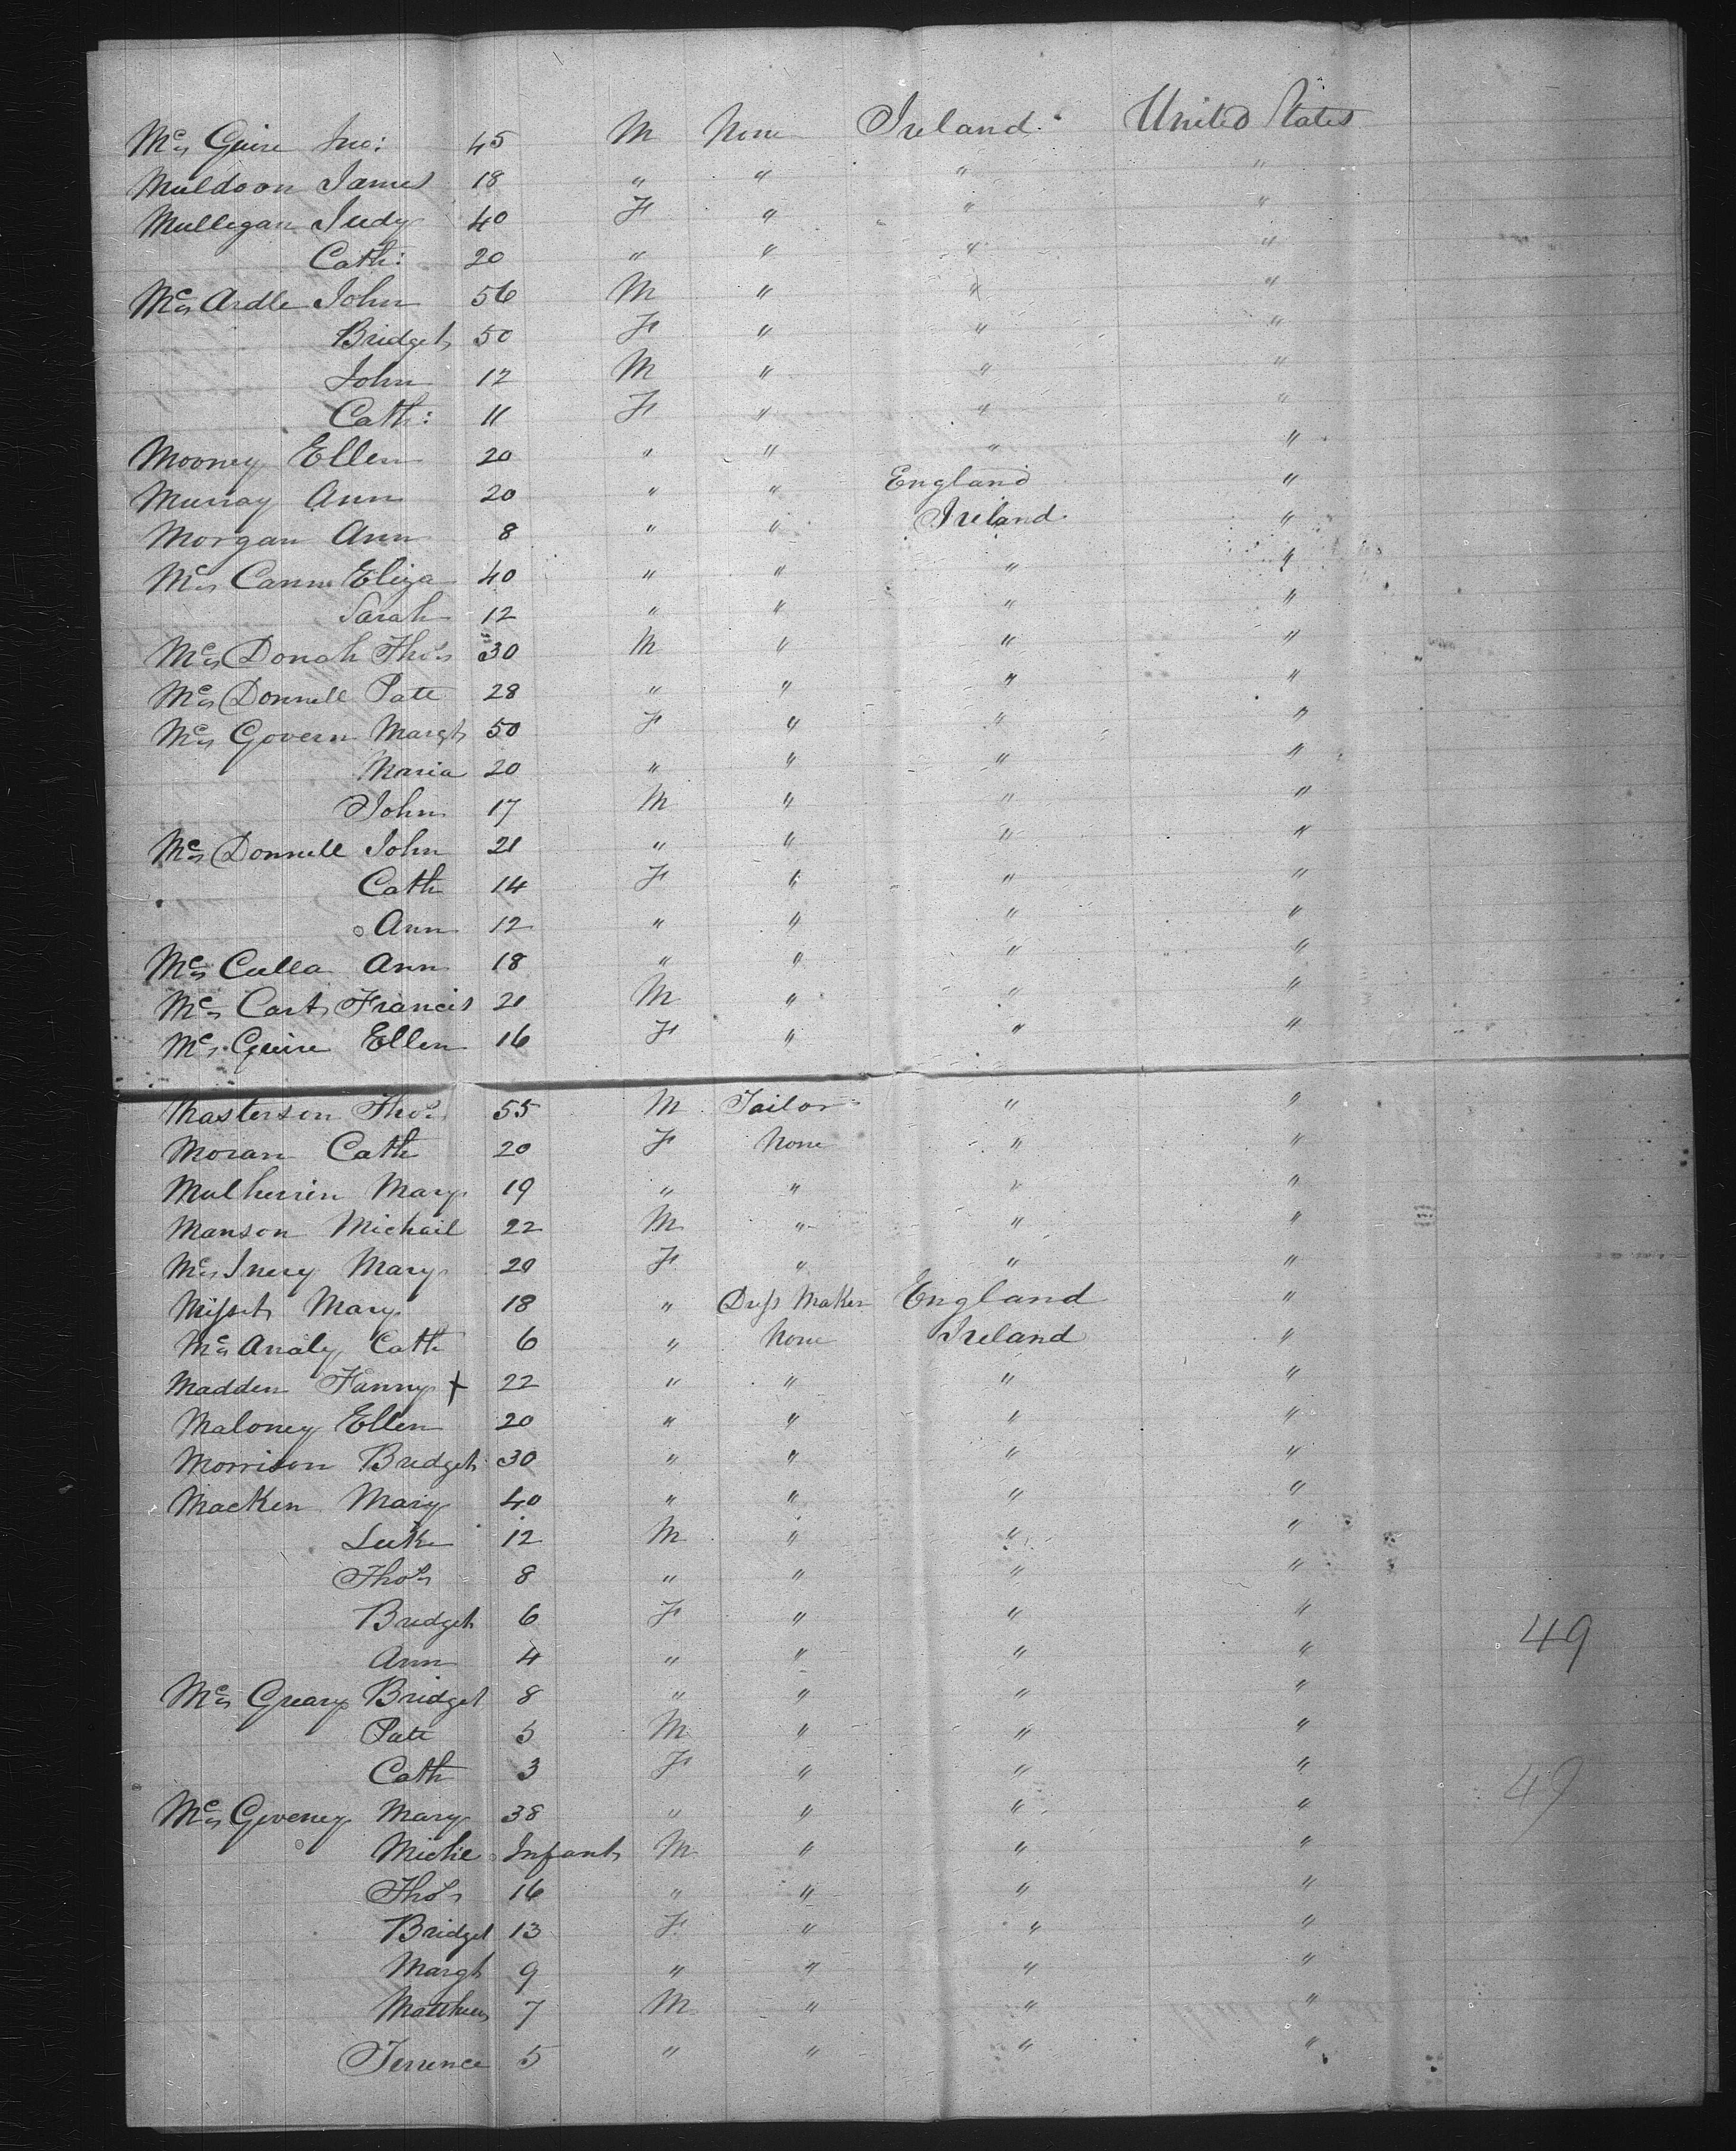 Mc Guire Jno: 45 M None Ireland United States
Muldoon James 18 " " " "
Mulligan Judy 40 F " " "
Cath: 20 " " " "
Mc Ardle John 56 M " " "
Bridget 50 F " " "
John 12 M " " "
Cath: 11 F " " "
Mooney Ellen 20 " " " "
Murray Ann 20 " " England "
Morgan Ann 8 " " Ireland "
Mc Cann Eliza 40 " " " "
Sarah 12 " " " "
Mc Donah Thos 30 M " " "
Mc Donnell Patt 28 " " " "
Mc Govern Margt 50 F " " "
Maria 20 " " " "
John 17 M " " "
Mc Donnell John 21 " " " "
Cath 14 F " " "
Ann 12 " " " "
Mc Culla Ann 18 " " " "
Mc Cart Francis 21 M " " "
Mc Guire Ellen 16 F " " "
Masterson Thos 55 M Tailor " "
Moran Cath 20 F None " "
Mulherrin Mary 19 " " " "
Manson Michail 22 M " " "
Mc Inery Mary 20 F " " "
Misset Mary 18 " Dress Maker England "
Mc Analy Cath 6 " None Ireland "
Madden Fanny + 22 " " " "
Maloney Ellen 20 " " " "
Morrison Bridget 30 " " " "
Macken Mary 40 " " " "
Luke 12 M " " "
Thos 8 " " " "
Bridget 6 F " " "
Ann 4 " " " "
49
Mc Greary Bridget 8 " " " "
Patt 5 M " " "
Cath 3 F " " "
49
Mc Giveney Mary 38 " " " "
Miche Infant M " " "
Thos 16 " " " "
Bridget 13 F " " "
Margt 9 " " " "
Matthew 7 M " " "
Terrence 5 " " " "